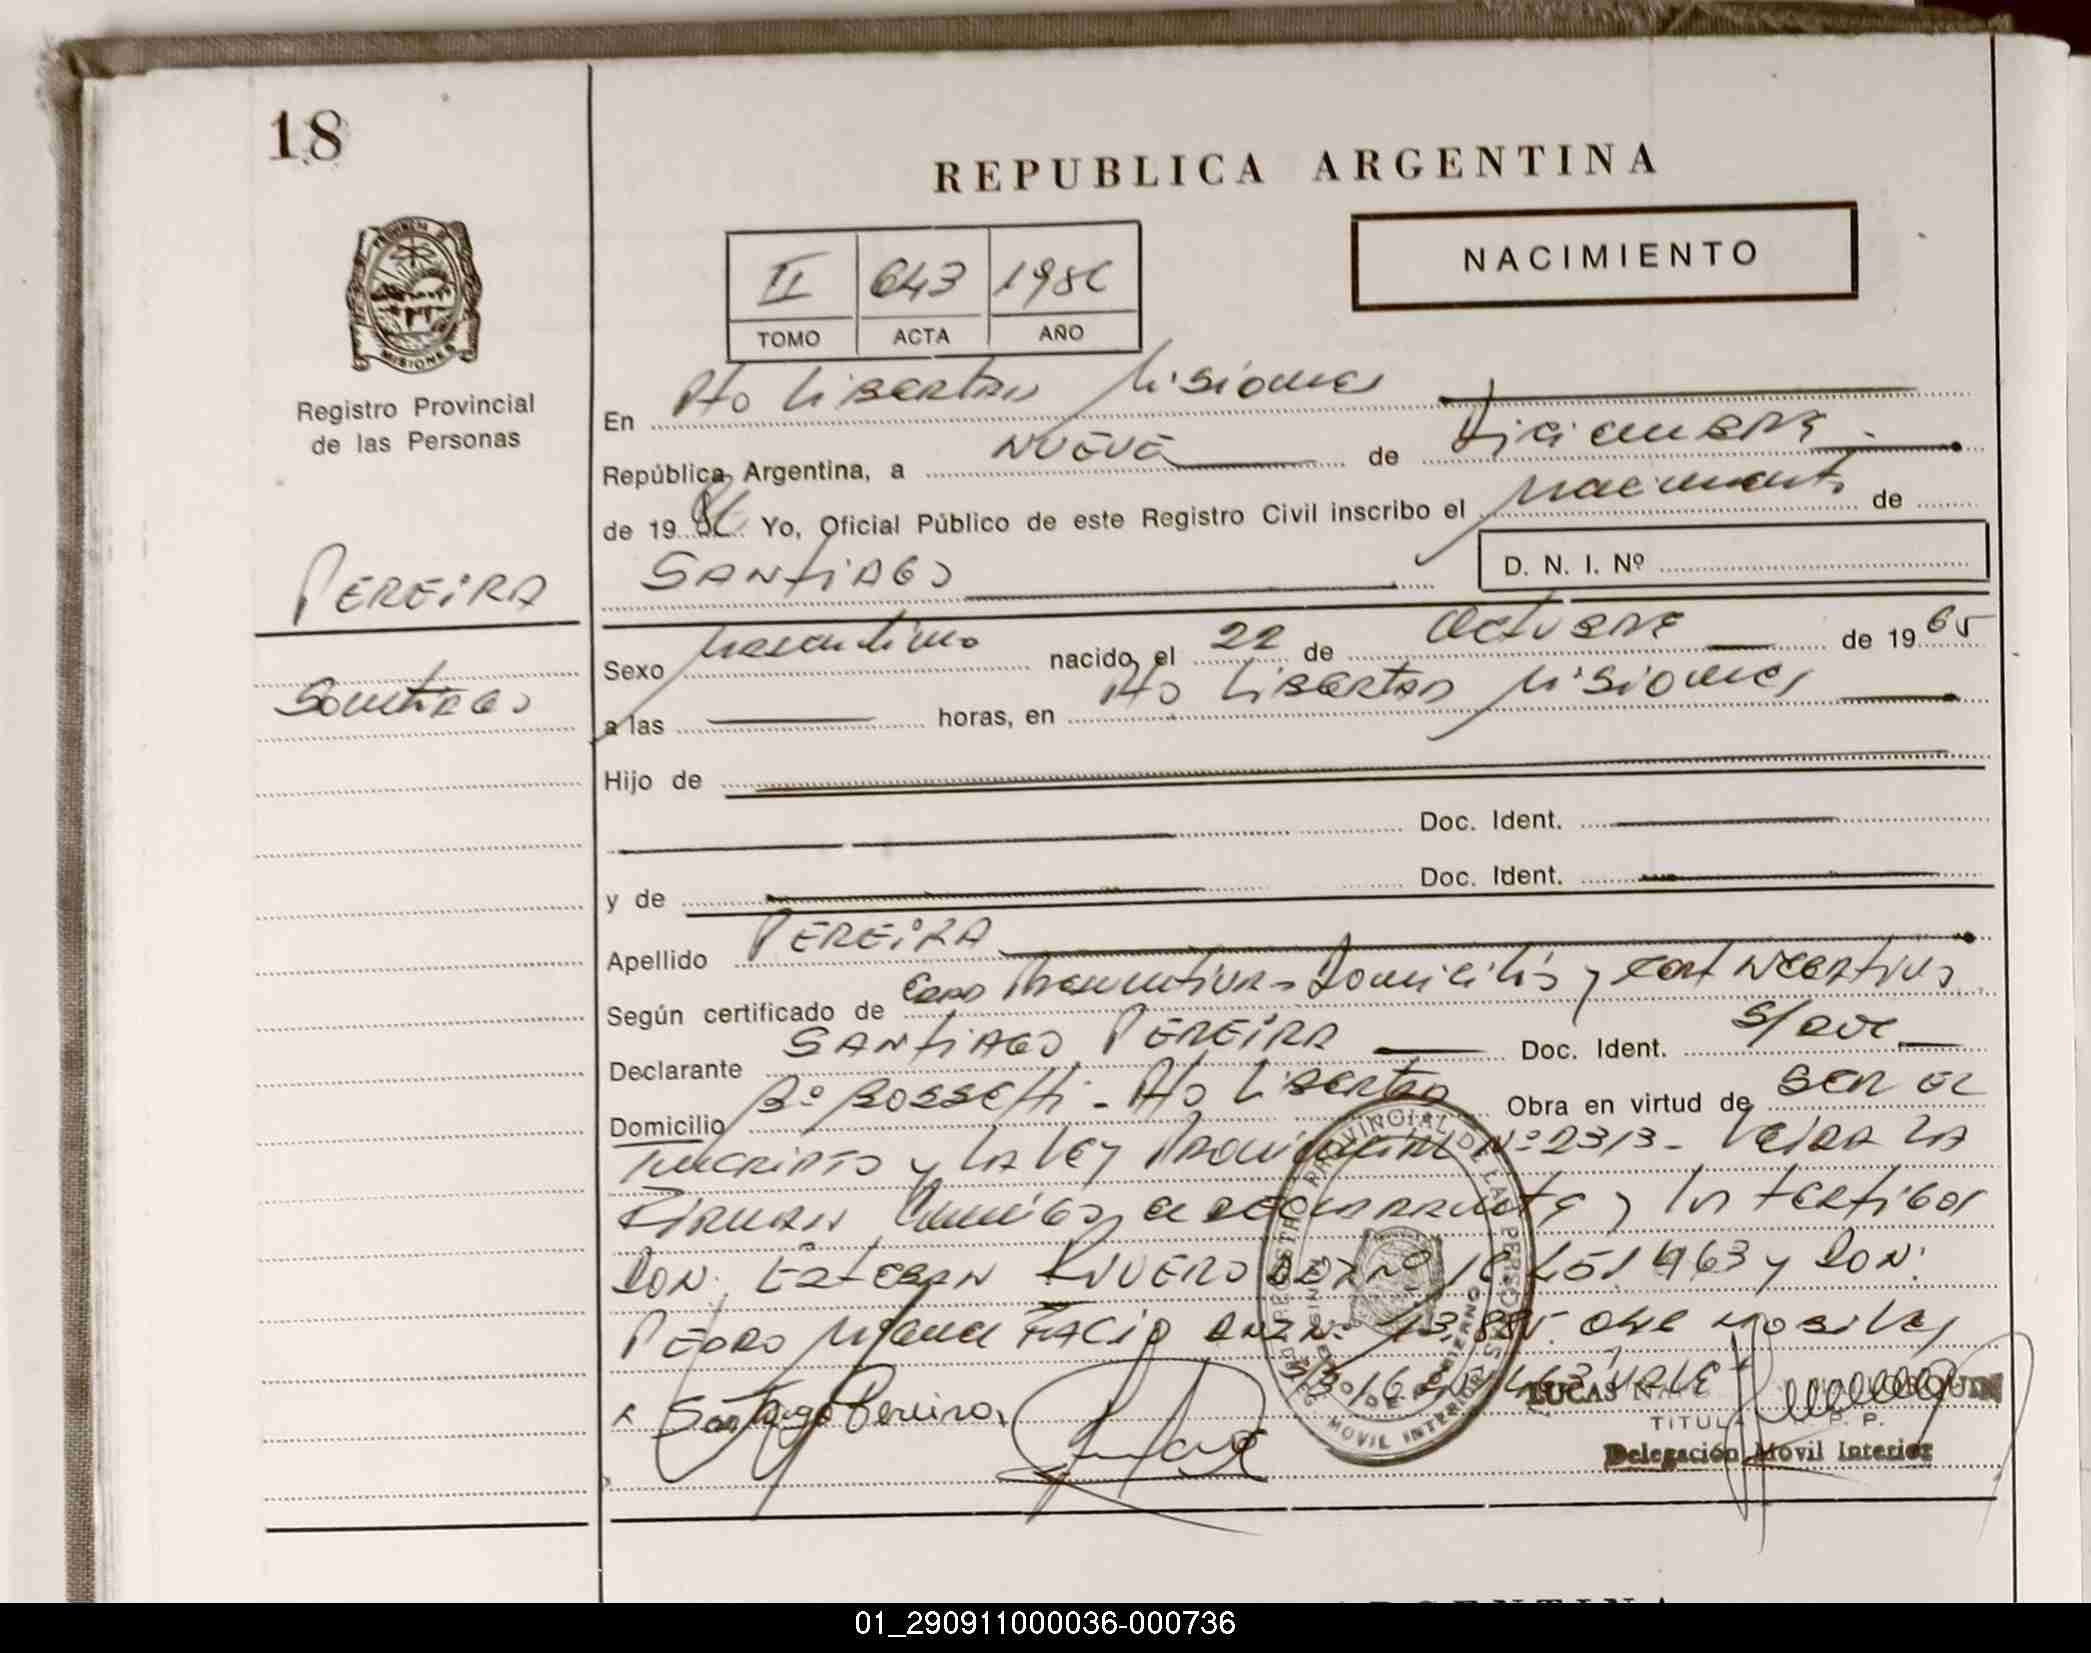 18
REPUBLICA ARGENTINA
NACIMIENTO
II 643 1986
TOMO ACTA AÑO
PROVINCIA DE MISIONES
Registro Provincial
de las Personas
En Pto Libertad Misiones
República Argentina, a NUEVE de Diciembre
de 1986 Yo, Oficial Público de este Registro Civil inscribo el Nacimiento de
SANTIAGO D. N. I. Nº
PEREIRA
Santiago
Sexo Masculino nacido el 22 de Octubre de 1965
a las horas, en Pto Libertad Misiones
Hijo de
Doc. Ident.
y de Doc. Ident.
Apellido PEREIRA
Según certificado de Domicilio y
Declarante SANTIAGO PEREIRA Doc. Ident.
Domicilio Bº Rossetti - Pto Libertad Obra en virtud de SER EL
Inscripto y la Ley Provincial Nº 2313 - Leida LA
Firman Conmigo el declarante y los testigos
DON: Esteban Rivero y DON:
PEDRO Miguel
VALE
Santiago Pereira
REGISTRO PROVINCIAL DE LAS PERSONAS
MOVIL INTERIOR
LUCAS
TITULAR
Delegación Movil Interior
ARGENTINA
01_290911000036-000736